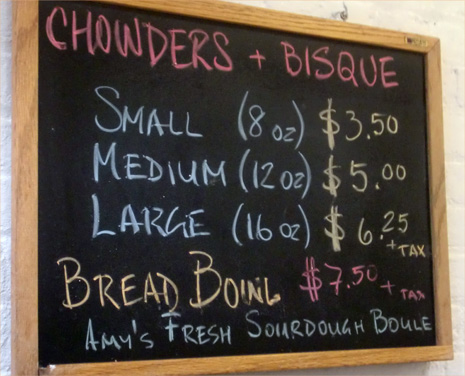 CHOWDERS + BISQUE
SMALL (8 oz) $3.50
MEDIUM (12 oz) $5.00
LARGE (16 oz) $6.25
+ TAX
BREAD BOWL $7.50 + TAX
AMY'S FRESH SOURDOUGH BOULE